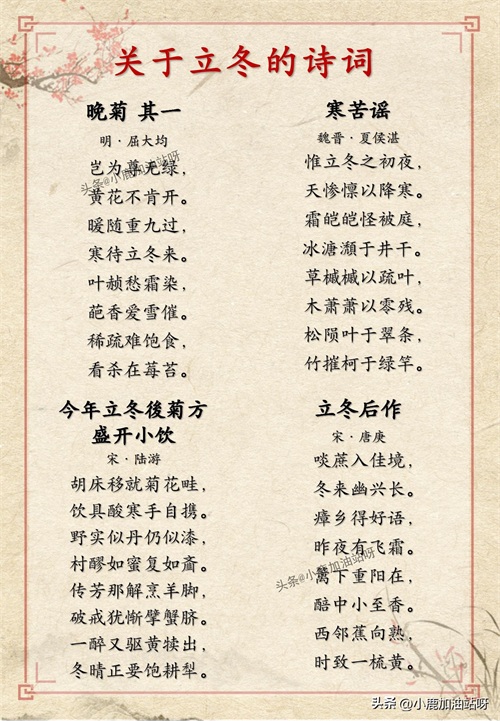 关于立冬的诗词
晚菊 其一
明·屈大均
岂为尊无绿，
黄花不肯开。
暖随重九过，
寒待立冬来。
叶赪愁霜染，
葩香爱雪催。
稀疏难饱食，
看杀在莓苔。
寒苦谣
魏晋·夏侯湛
惟立冬之初夜，
天惨懔以降寒。
霜皑皑怪被庭，
冰溏瀩于井干。
草槭槭以疏叶，
木萧萧以零残。
松陨叶于翠条，
竹摧柯于绿竿。
今年立冬後菊方
盛开小饮
宋·陆游
胡床移就菊花畦，
饮具酸寒手自携。
野实似丹仍似漆，
村醪如蜜复如齑。
传芳那解烹羊脚，
破戒犹惭擘蟹脐。
一醉又驱黄犊出，
冬晴正要饱耕犁。
立冬后作
宋·唐庚
啖蔗入佳境，
冬来幽兴长。
瘴乡得好语，
昨夜有飞霜。
篱下重阳在，
醅中小至香。
西邻蕉向熟，
时致一梳黄。
头条@小鹿加油站呀
头条@小鹿加油站呀
头条 @小鹿加油站呀